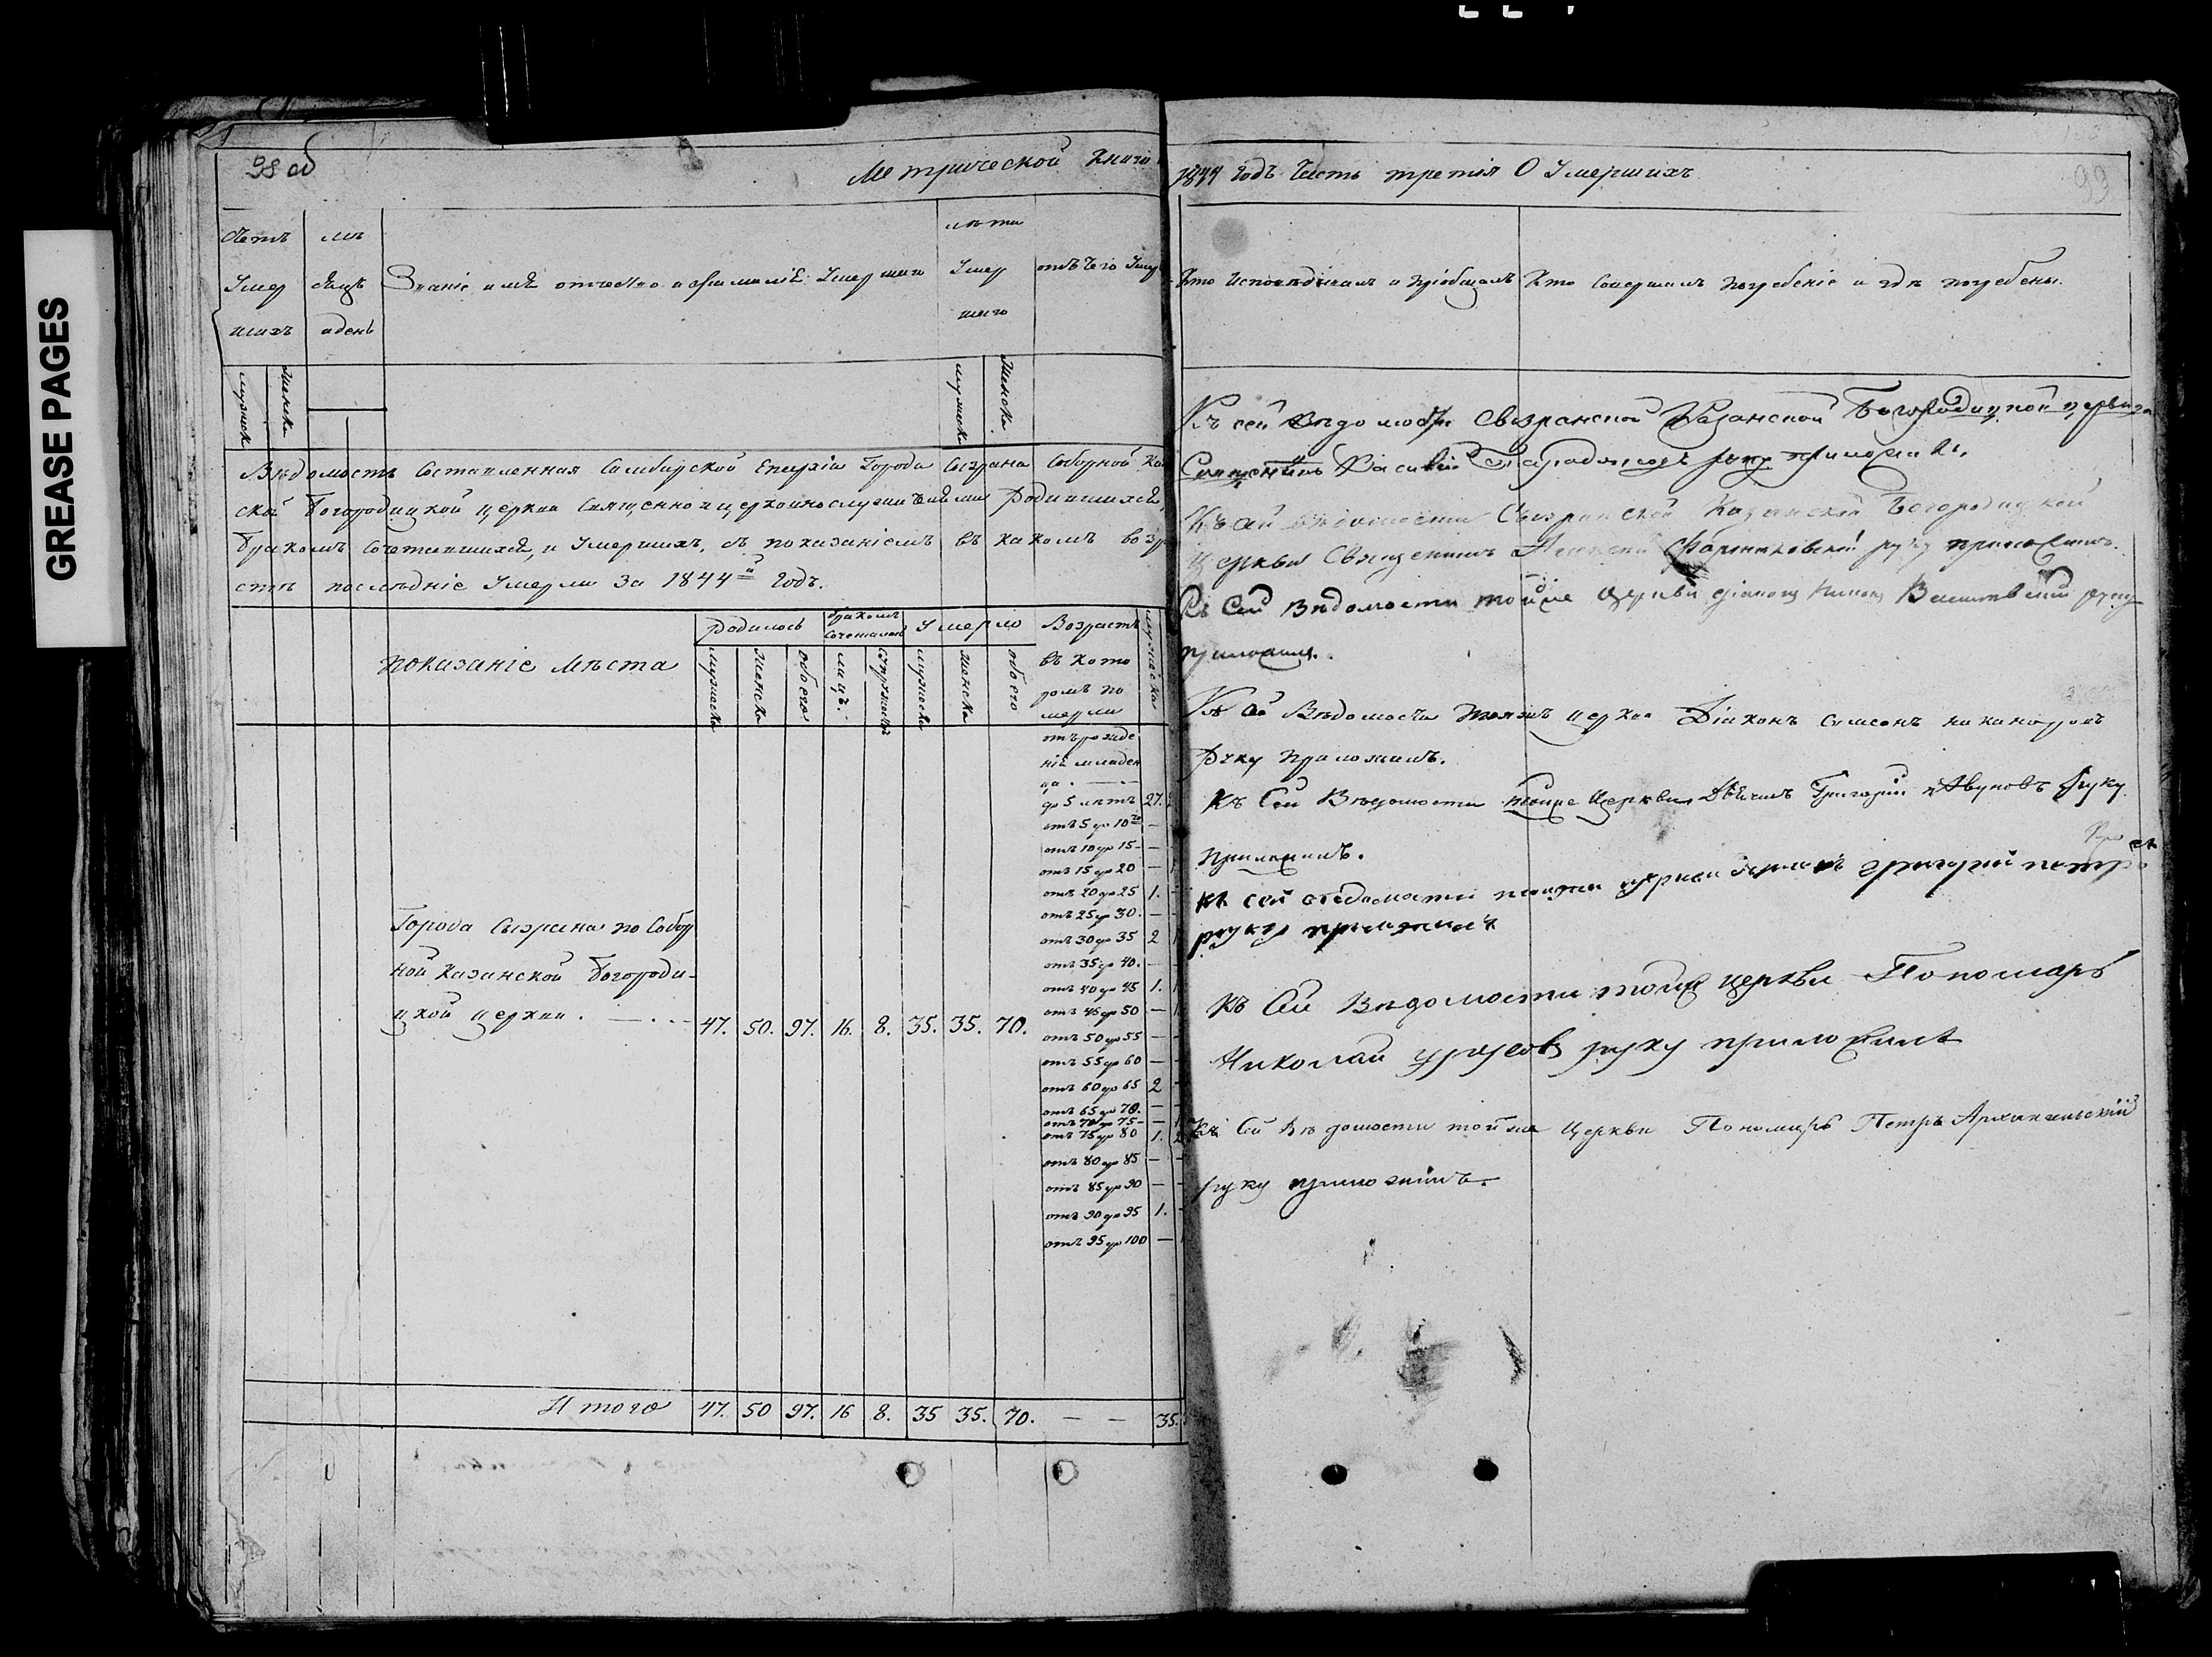 GREASE PAGES
98 об
Метрической Книги
1844 годъ Часть третія О Умершихъ
99
Счетъ
Умер
шихъ
мѣ
сяцъ
и день
Званіе имя отчество и фамилія Умершаго
лѣта
Умер
шаго
отъ чего Умер
Кто Исповѣдывалъ и пріобщалъ
Кто Совершалъ погребеніе и гдѣ погребены.
мужеск
женска
мужеска
женска.
Вѣдомость Составленная Симбирской Епархіи Города Сызрана Соборной Ка
ской Богородицкой церкви Священно и церковнослужителями Родившихся,
бракомъ Сочетавшихся, и Умершихъ, съ показаніемъ въ какомъ возр
стѣ послѣдніе Умерли за 1844й Годъ.
показаніе Мѣста
Родилось
бракомъ
Сочеталось
Умерло
Возрастъ
въ кото
ромъ по
мерли
мужеска
женска
обоего
лицъ.
супружествъ
мужеска
женска
обоего
мужеска
отъ рожде
нія младен
ца .
до 5 лѣтъ 27.
отъ 5 до 10ти —
отъ 10 до 15 — —
отъ 15 до 20 —
отъ 20 до 25 1.
отъ 25 до 30. —
отъ 30 до 35 2
отъ 35 до 40. —
отъ 40 до 45 1.
отъ 45 до 50 —
отъ 50 до 55 —
отъ 55 до 60 —
отъ 60 до 65 2
отъ 65 до 70. —
отъ 70 до 75 — —
отъ 75 до 80 1.
отъ 80 до 85 —
отъ 85 до 90 —
отъ 90 до 95 1.
отъ 95 до 100 —
Города Сызрана по Собор
ной Казанской Богороди-
цкой церкви . — . — 47. 50. 97. 16. 8. 35. 35. 70.
Итого 47. 50 97. 16 8. 35 35. 70. — — 35.
Къ сей вѣдомости Сызранской Казанской Богородицкой церкви
Священникъ Василій руку приложилъ.
Къ сей вѣдомости Сызранской Казанской Богородицкой
Церкви Священникъ руку приложилъ.
Къ Сей Вѣдомости тойже Церкви руку
приложилъ.
Къ сей Вѣдомости тояжъ церкви Діаконъ Симеонъ руку
Руку приложилъ.
Къ Сей Вѣдомости тойже Церкви Дьячекъ Григорій руку
Приложилъ.
къ сей вѣдомости тойже церкви Григорій
руку приложилъ
Къ Сей Вѣдомости тойже церкви Пономарь
Николай руку приложилъ
Къ Сей Вѣдомости тойже Церкви Пономарь Петръ Архангельскій
руку приложилъ.